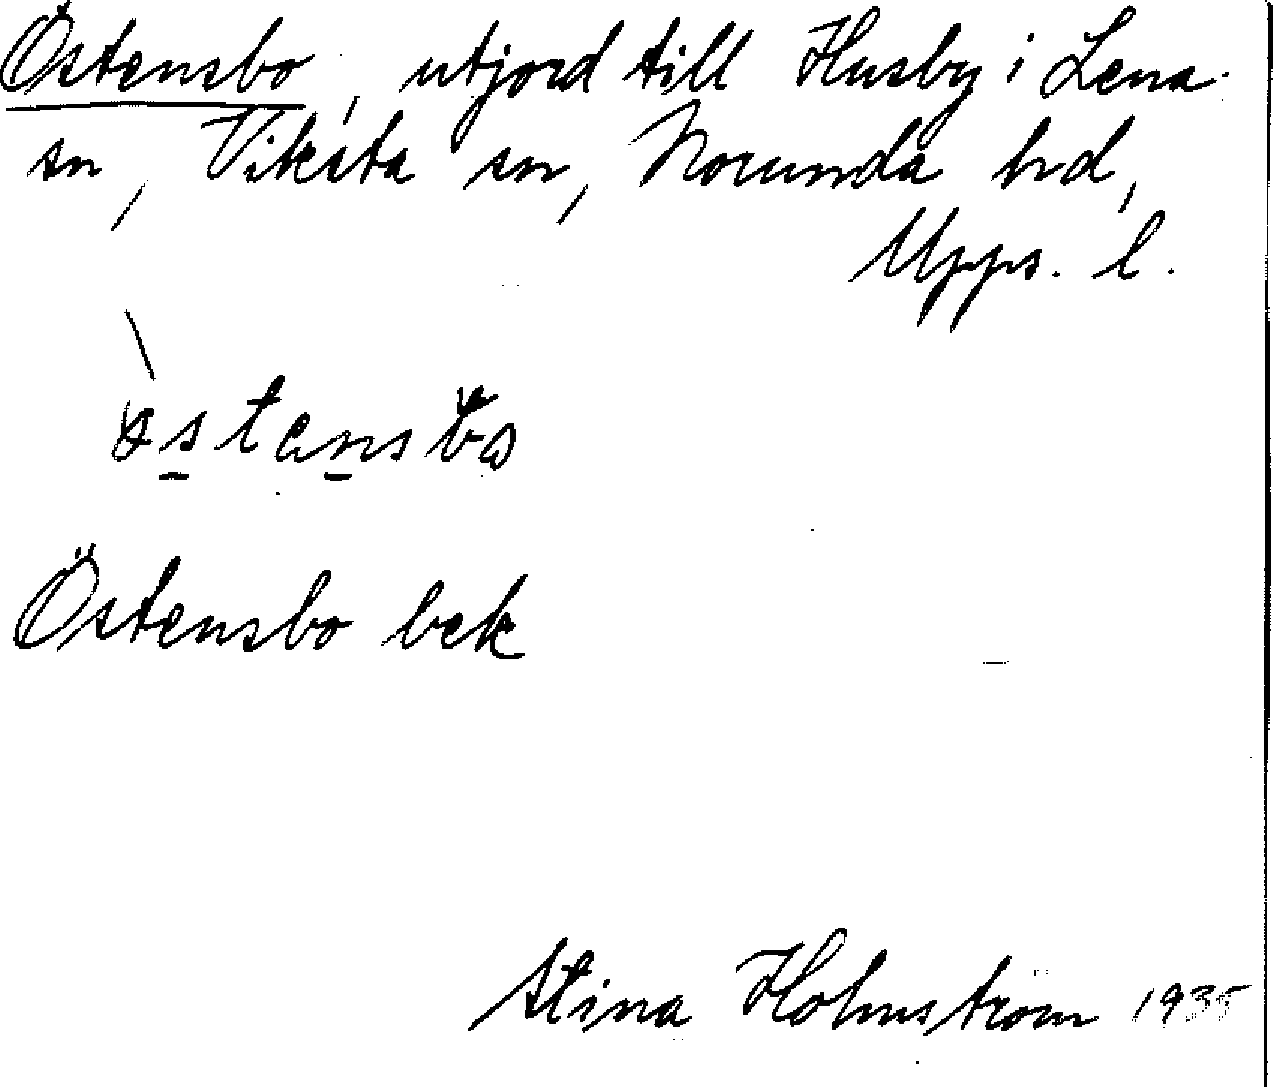 Östensbo, utjord till Husby i Lena
sn, Viksta sn, Norunda hd,
Upps. l.
Östensbo bek
Stina Holmström 1935